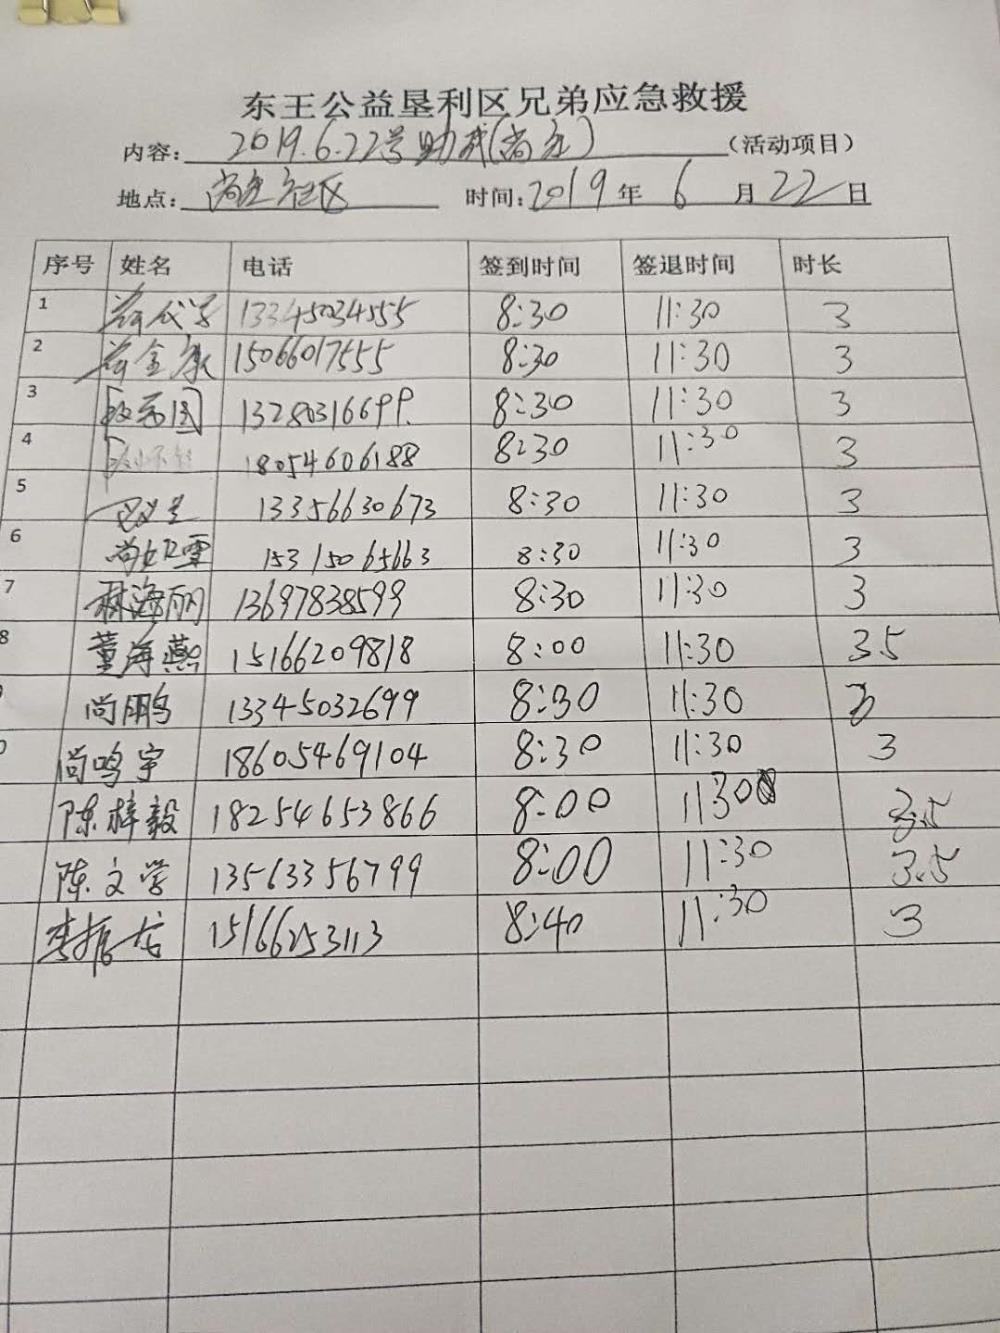 东王公益垦利区兄弟应急救援
内容: 2019.6.22号助残(尚庄) (活动项目)
地点: 尚庄社区 时间: 2019年 6 月 22 日
序号 姓名 电话 签到时间 签退时间 时长
1 13345034555 8:30 11:30 3
2 15066017555 8:30 11:30 3
3 13280316699. 8:30 11:30 3
4 18054606188 8:30 11:30 3
5 13356630673 8:30 11:30 3
6 15315065663 8:30 11:30 3
7 林海丽 13697838599 8:30 11:30 3
8 董海燕 15166209818 8:00 11:30 3.5
尚鹏 13345032699 8:30 11:30 3
尚鸣宇 18605469104 8:30 11:30 3
陈梓毅 18254653866 8:00 1130 3.5
陈文学 13563356799 8:00 11:30 3.5
李振龙 15166253113 8:40 11:30 3